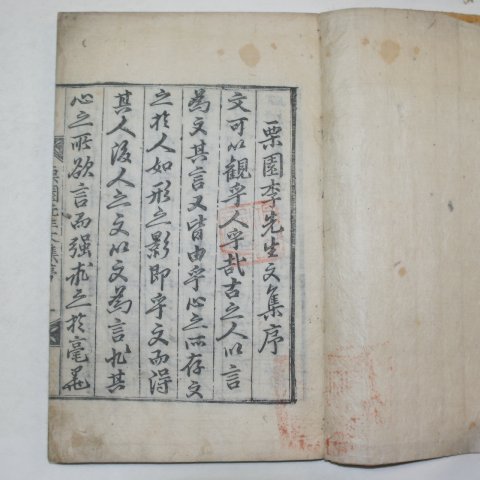 栗園李先生文集序
文可以觀乎人乎哉古之人以言
為文其言又皆由乎心之所存文
之於人如形之影即乎文而得
其人後人之文以文為言非其
心之所欲言而强求之於毫